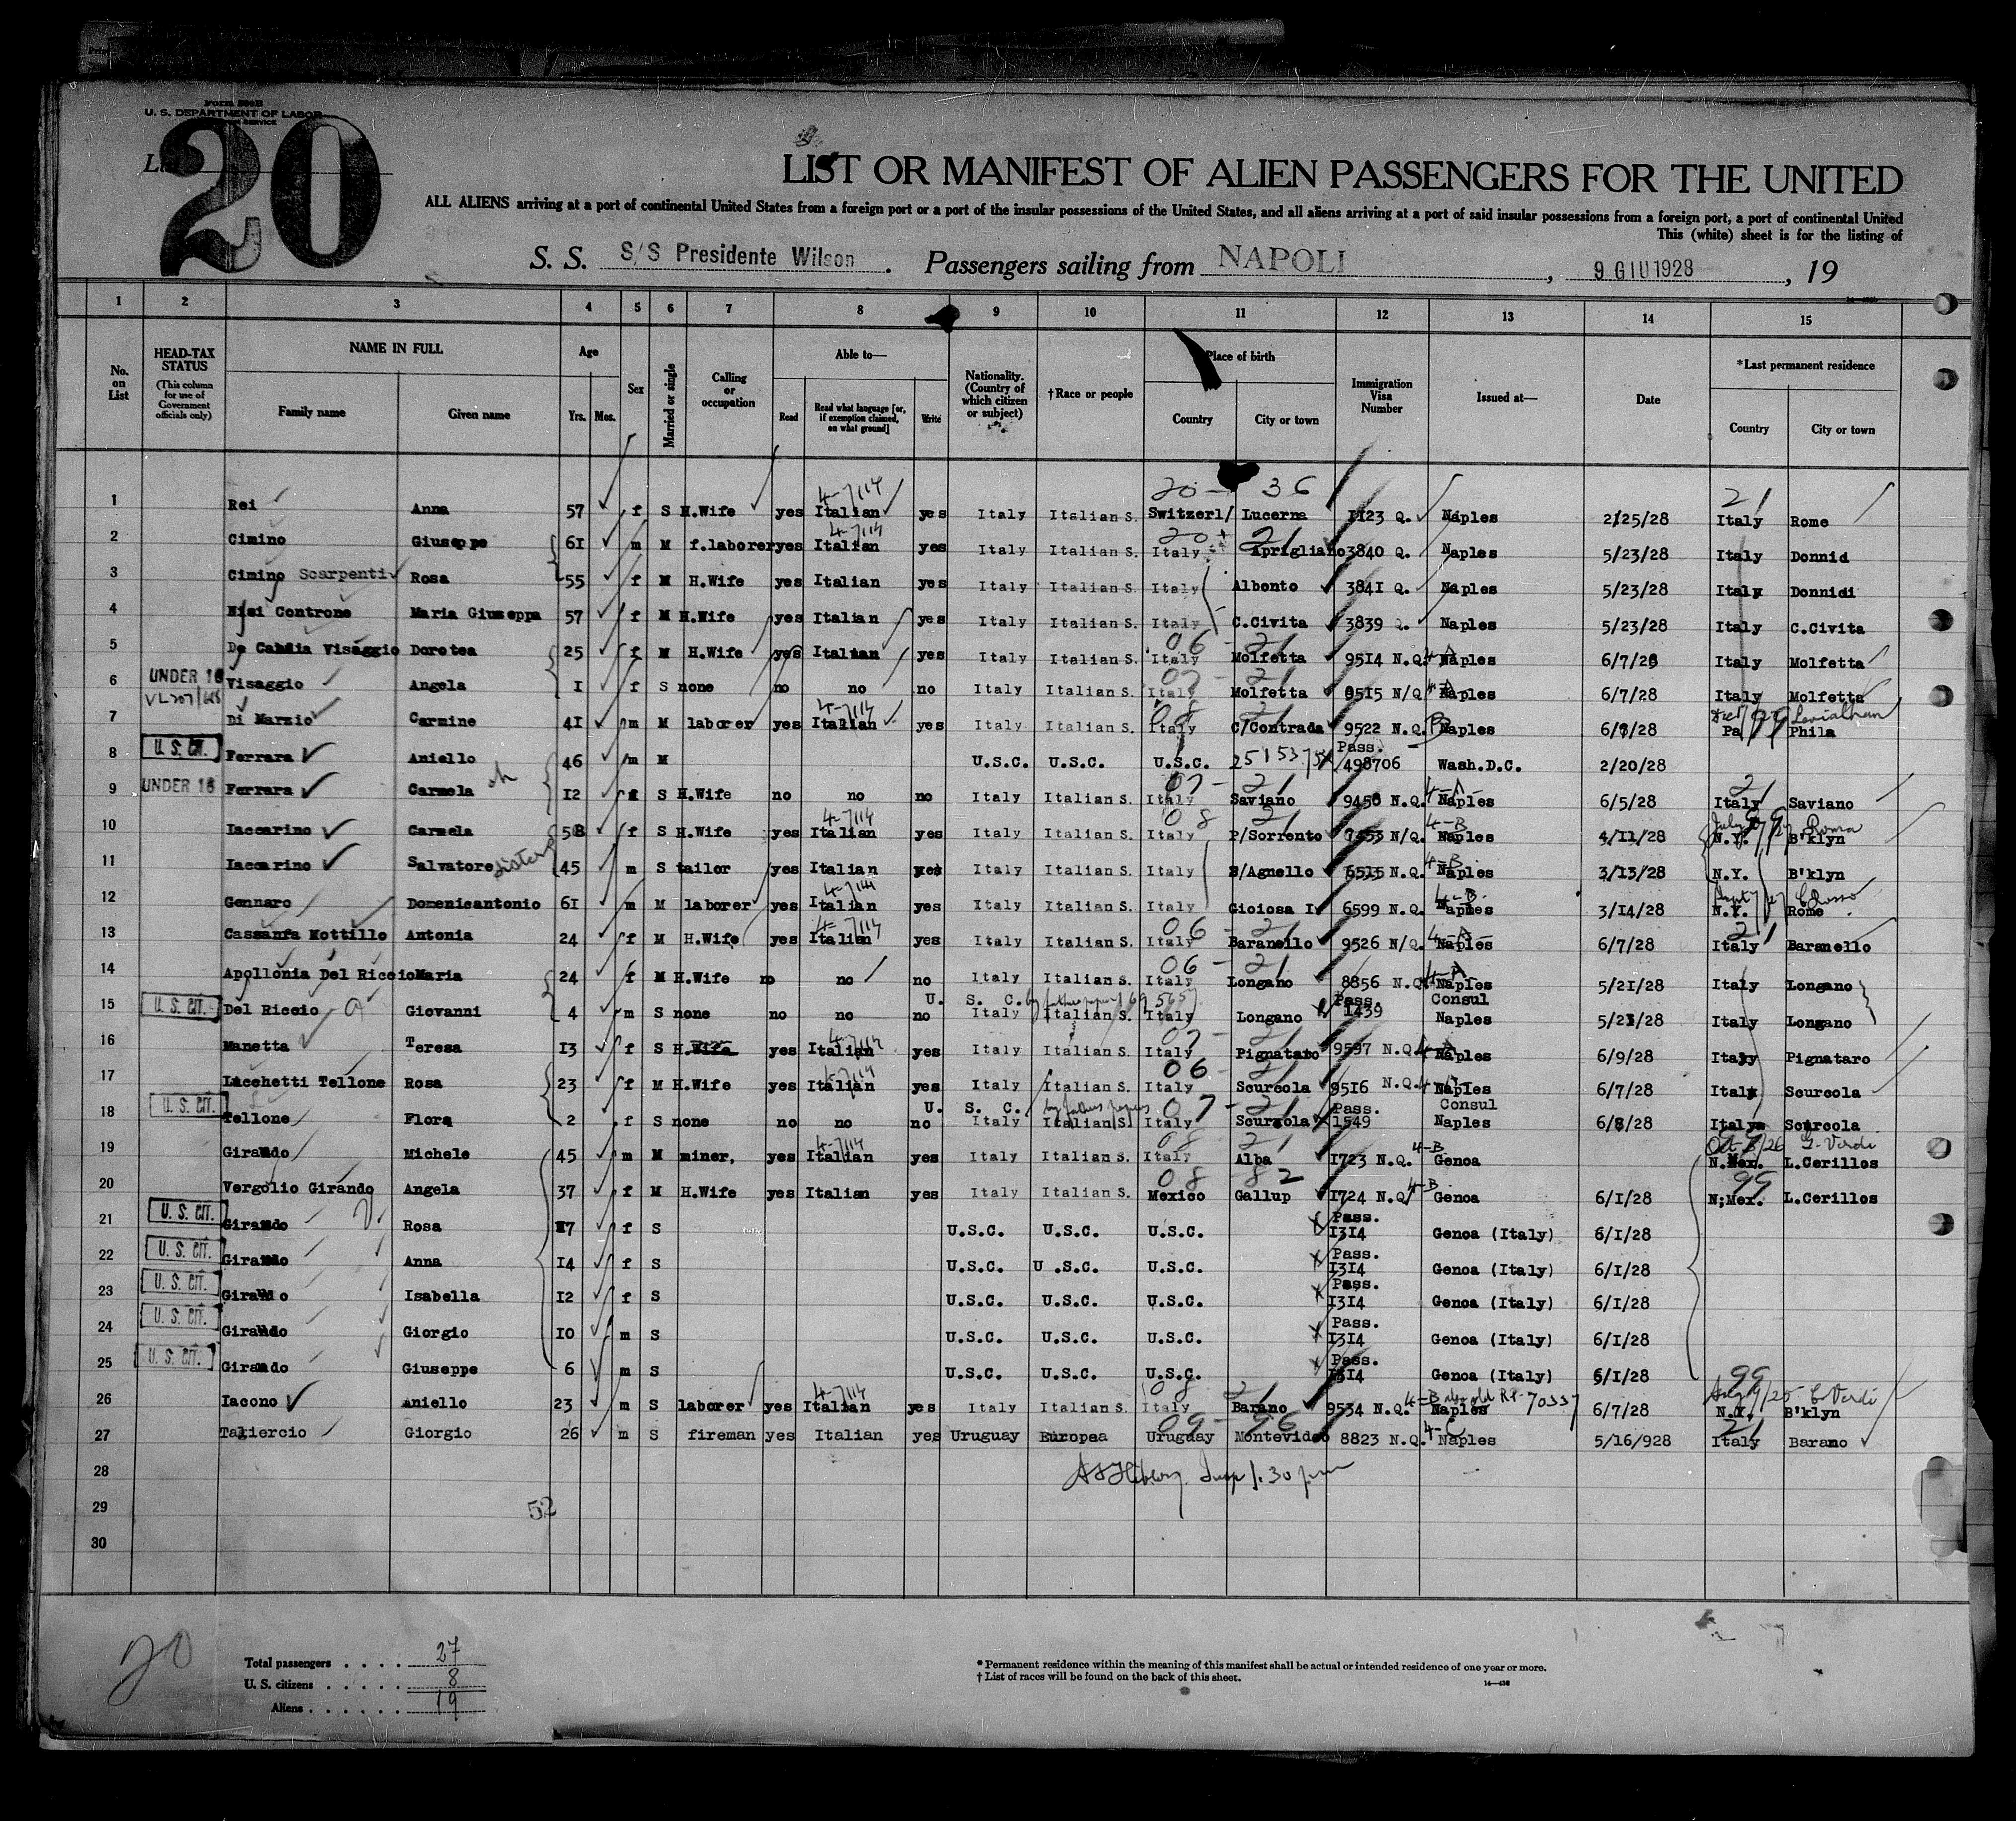 Form 500B
U. S. DEPARTMENT OF LABOR
20
LIST OR MANIFEST OF ALIEN PASSENGERS FOR THE UNITED
ALL ALIENS arriving at a port of continental United States from a foreign port or a port of the insular possessions of the United States, and all aliens arriving at a port of said insular possessions from a foreign port, a port of continental United
This (white) sheet is for the listing of
S. S. S/S Presidente Wilson. Passengers sailing from NAPOLI, 9 GIU 1928, 19
1 2 3 4 5 6 7 8 9 10 11 12 13 14 15
No. on List HEAD-TAX STATUS (This column for use of Government officials only) NAME IN FULL Family name Given name Age Yrs. Mos. Sex Married or single Calling or occupation Able to— Read Read what language [or, if exemption claimed, on what ground] Write Nationality. (Country of which citizen or subject) †Race or people Place of birth Country City or town Immigration Visa Number Issued at— Date *Last permanent residence Country City or town
20 - 36 21
1 Rei Anna 57 f S H.Wife yes Italian yes Italy Italian S. Switzerl/ Lucerne 1123 Q. Naples 2/25/28 Italy Rome
2 Cimino Giuseppe 61 m M f.laborer yes Italian yes Italy Italian S. Italy Aprigliano 3840 Q. Naples 5/23/28 Italy Donnid
3 Cimino Scarpenti Rosa 55 f M H.Wife yes Italian yes Italy Italian S. Italy Albento 3841 Q. Naples 5/23/28 Italy Donnidi
4 Nisi Controne Maria Giuseppa 57 f M H.Wife yes Italian yes Italy Italian S. Italy C.Civita 3839 Q. Naples 5/23/28 Italy C.Civita
5 De Candia Visaggio Dorotea 25 f M H.Wife yes Italian yes Italy Italian S. Italy Molfetta 9514 N.Q. Naples 6/7/28 Italy Molfetta
6 UNDER 16 Visaggio Angela 1 f S none no no no Italy Italian S. Italy Molfetta 9515 N/Q Naples 6/7/28 Italy Molfetta
7 Di Marzio Carmine 41 m M laborer yes Italian yes Italy Italian S. Italy C/Contrada 9522 N.Q. Naples 6/8/28 Pa Phila
Leviathan
8 U. S. CIT. Ferrara Aniello 46 m M U.S.C. U.S.C. U.S.C. Pass. 498706 Wash.D.C. 2/20/28
9 UNDER 16 Ferrara Carmela 12 f S H.Wife no no no Italy Italian S. Italy Saviano 9450 N.Q. Naples 6/5/28 Italy Saviano
10 Iaccarino Carmela 58 f S H.Wife yes Italian yes Italy Italian S. Italy P/Sorrento 7453 N/Q. Naples 4/11/28 N.Y. B'klyn
11 Iaccarino Salvatore sister 45 m S tailor yes Italian yes Italy Italian S. Italy S/Agnello 6515 N.Q. Naples 3/13/28 N.Y. B'klyn
12 Gennaro Domenicantonio 61 m M laborer yes Italian yes Italy Italian S. Italy Gioiosa I. 6599 N.Q. Naples 3/14/28 N.Y. Rome
13 Cassanfa Mottillo Antonia 24 f M H.Wife yes Italian yes Italy Italian S. Italy Baranello 9526 N/Q. Naples 6/7/28 Italy Baranello
14 Apollonia Del Riccio Maria 24 f M H.Wife no no no Italy Italian S. Italy Longano 8856 N.Q. Naples 5/21/28 Italy Longano
15 U. S. CIT. Del Riccio Giovanni 4 m S none no no no U. S. C. Italy Italian S. Italy Longano Pass. 1439 Consul Naples 5/23/28 Italy Longano
16 Manetta Teresa 13 f S H.Wife yes Italian yes Italy Italian S. Italy Pignataro 9597 N.Q. Naples 6/9/28 Italy Pignataro
17 Iacchetti Tellone Rosa 23 f M H.Wife yes Italian yes Italy Italian S. Italy Scurcola 9516 N.Q. Naples 6/7/28 Italy Scurcola
18 U. S. CIT. Tellone Flora 2 f S none no no no U. S. C. by fathers papers Italy Italian S. Italy Scurcola Pass. 1549 Consul Naples 6/8/28 Italy Scurcola
19 Girando Michele 45 m M miner, yes Italian yes Italy Italian S. Italy Alba 1723 N.Q. 4-B Genoa N.Mex. L.Cerillos
20 Vergolio Girando Angela 37 f M H.Wife yes Italian yes Italy Italian S. Mexico Gallup 1724 N.Q. 4-B Genoa 6/1/28 N;Mex. L.Cerillos
21 U. S. CIT. Girando Rosa 17 f S U.S.C. U.S.C. U.S.C. Pass. 1314 Genoa (Italy) 6/1/28
22 U. S. CIT. Girando Anna 14 f S U.S.C. U .S.C. U.S.C. Pass. 1314 Genoa (Italy) 6/1/28
23 U. S. CIT. Girando Isabella 12 f S U.S.C. U.S.C. U.S.C. Pass. 1314 Genoa (Italy) 6/1/28
24 U. S. CIT. Girando Giorgio 10 m S U.S.C. U.S.C. U.S.C. Pass. 1314 Genoa (Italy) 6/1/28
25 U. S. CIT. Girando Giuseppe 6 m S U.S.C. U.S.C. U.S.C. Pass. 1314 Genoa (Italy) 6/1/28
26 Iacono Aniello 23 m S laborer yes Italian yes Italy Italian S. Italy Barano 9534 N.Q. 4-B Naples 6/7/28 N.Y. B'klyn
27 Taliercio Giorgio 26 m S fireman yes Italian yes Uruguay Europea Uruguay Montevideo 8823 N.Q. 4-C Naples 5/16/928 Italy Barano
28
29 52
30
20
Total passengers . . . . 27
U. S. citizens . . . . . 8
Aliens . . . . . . 19
* Permanent residence within the meaning of this manifest shall be actual or intended residence of one year or more.
† List of races will be found on the back of this sheet.